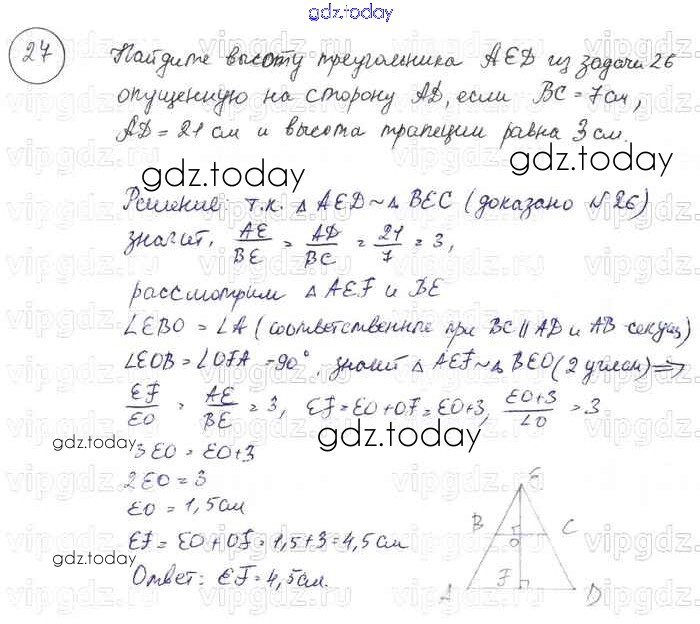 gdz.today
27
Найдите высоту треугольника AED из задачи 26
опущенную на сторону AD, если BC = 7см,
AD = 21 см и высота трапеции равна 3 см.
gdz.today
gdz.today
Решение: т.к. △ AED ~ △ BEC (доказано №26)
значит, AE/BE = AD/BC = 21/7 = 3,
рассмотрим △ AEF и BE
∠EBO = ∠A (соответственные при BC ∥ AD и AB-секущ)
∠EOB = ∠OFA = 90°, значит △ AEF ~ △ BEO (2 углам) ⇒
EF/EO = AE/BE = 3, EF = EO + OF = EO+3, EO+3/EO = 3
gdz.today
gdz.today
3EO = EO+3
2EO = 3
EO = 1,5см
EF = EO + OF = 1,5+3 = 4,5 см
gdz.today
Ответ: EF = 4,5см.
E
B
C
O
F
A
D
vipgdz.today